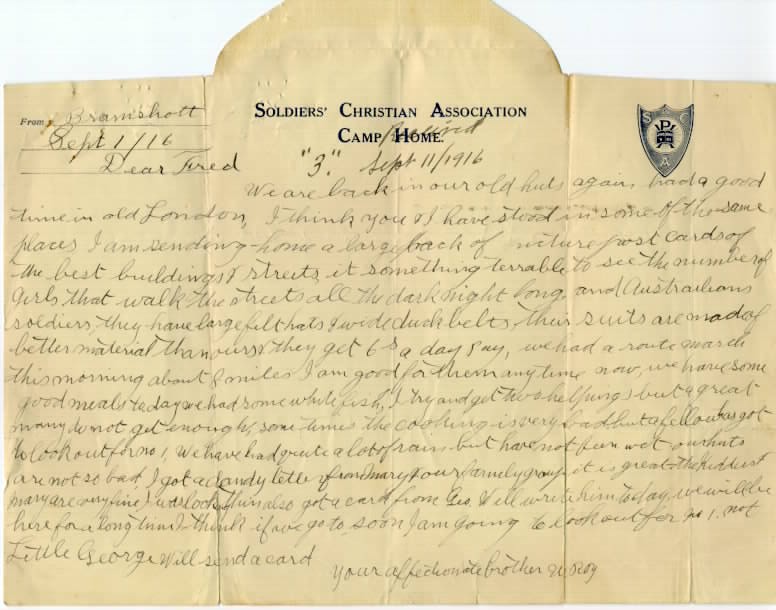 SOLDIERS' CHRISTIAN ASSOCIATION
CAMP HOME.
From Bramshott
Sept 1/16
Received
Sept 11/1916
"3".
S C A
Dear Fred
We are back in our old huts again had a good
time in old London, I think you & I have stood in some of the same
places I am sending home a large pack of picture post cards of
the best buildings & streets, it something terrable to see the number of
Girls that walk the streets all the dark night long and Austrailians
soldiers, they have large felt hats & wide duck belts, their suits are mad of
better material than ours & they get 6s a day pay, we had a route march
this morning about 8 miles I am good for them any time now, we have some
good meals today we had some white fish, I try and get two helpings but a great
many do not get enough, some times the cooking is very bad but a fellow has got
to look out for no 1, We have had quite a lot of rain but have not been wet our huts
are not so bad, I got a dandy letter from mary & your family group it is great the kiddies &
mary are very fine, look thin also got a card from Geo. Will write him today, we will be
here for a long time I think if we go to soon I am going to look out for no 1. not
Little George Will send a card
Your affectionate brother W Roy